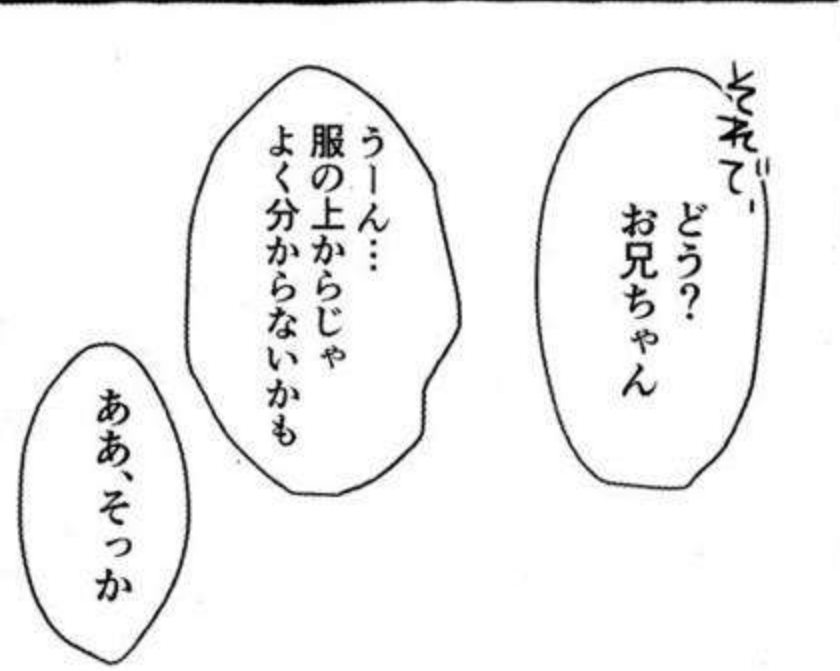 それで、
どう？
お兄ちゃん
うーん…
服の上からじゃ
よく分からないかも
ああ、そっか